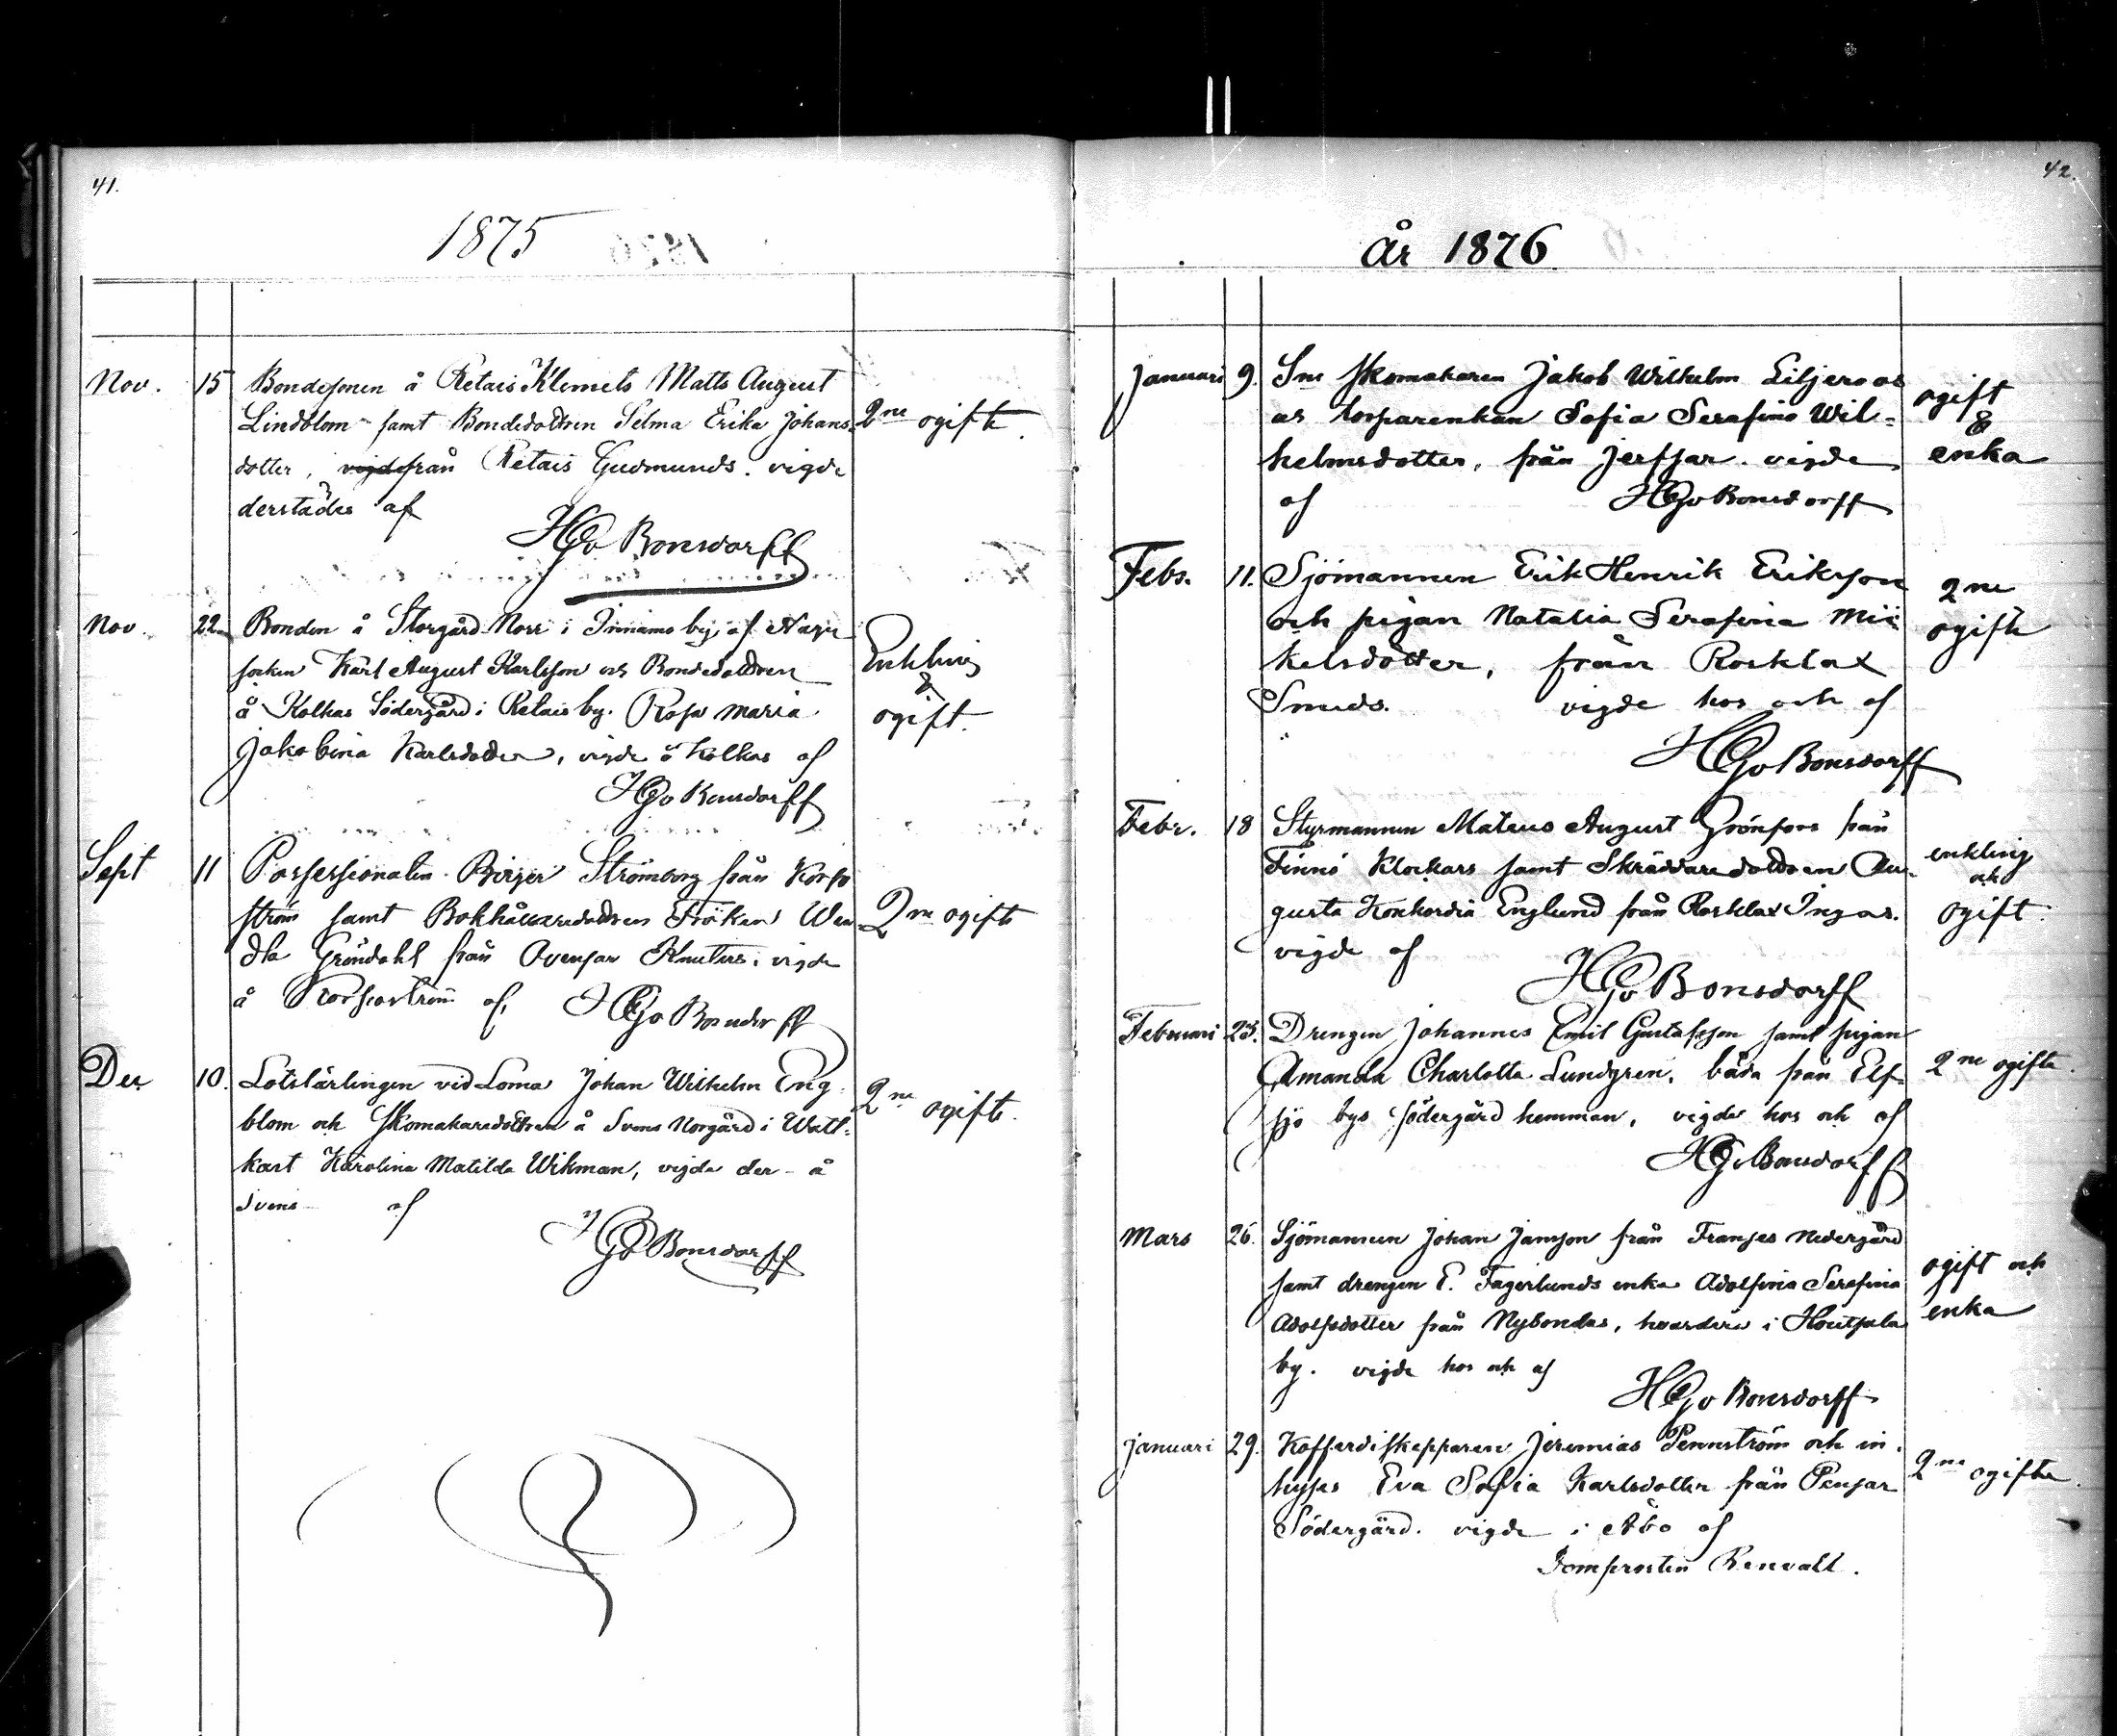 41.
1875
Nov. 15 Bondesonen å Retais Klemets Matts August
Lindblom samt Bondedottren Selma Erika Johans-
dotter, vigde från Retais Gudmunds. vigde
derstädes af
2ne ogifte.
HGv Bonsdorff
Nov. 22. Bonden å Storgård Norr i Innamo by af Nagu
socken Karl August Karlsson och Bondedottren
å Kolkas Södergård i Retais by. Rosa Maria
Jakobina Karlsdotter, vigde å Kolkas af
Enkling
&
ogift.
HGv Bonsdorff
Sept 11 Possessionaten Birger Strömborg från Korpo
ström samt Bokhållaredottren Fröken Wen-
dla Gröndahl från Avensar Knuters. vigde
å Korpoström af,
2ne ogifte
HGv Bonsdorff
Dec 10. Lotslärlingen vid Loma Johan Wilhelm Eng-
blom och Skomakaredottren å Svens Norgård i Watt-
kast Karolina Matilda Wikman, vigde der å
Svens af
2ne ogifte.
HGv Bonsdorff
42.
År 1876
Januari 9. Skomakaren Jakob Wilhelm Liljeroos
torparenkan Sofia Serafina Wil-
helmsdotter, från Jerfsar. vigde
af HGv Bonsdorff
ogift
&
enka
Febr. 11. Sjömannen Erik Henrik Eriksson
och pigan Natalia Serafina Mi-
kelsdotter, från Rosklax
Smeds. vigde hos och af
2ne
ogifte
HGv Bonsdorff
Febr. 18 Styrmannen Mateus August Grönfors från
Finnö Klockars samt Skräddaredottren Au-
gusta Konkordia Englund från Rosklax Ingas.
vigde af
enkling
och
ogift.
HGv Bonsdorff
Februari 25. Drengen Johannes Emil Gustafsson samt pigan
Amanda Charlotta Lundgren, båda från Elf-
sjö bys södergård hemman, vigde hos och af
2ne ogifte.
HGv Bonsdorff
Mars 26. Sjömannen Johan Jansson från Fransas Nedergård
samt drengen E. Fagerlunds enka Adolfina Serafina
Adolfsdotter från Nybondas, hvardera i Houtsala
by. vigde hos och af
ogift och
enka
HGv Bonsdorff
Januari 29. Kofferdiskepparen Jeremias Pennström och in-
hyses Eva Sofia Karlsdotter från Pensar
Södergård. vigde i Åbo af
2ne ogifte.
Domprosten Renvall.